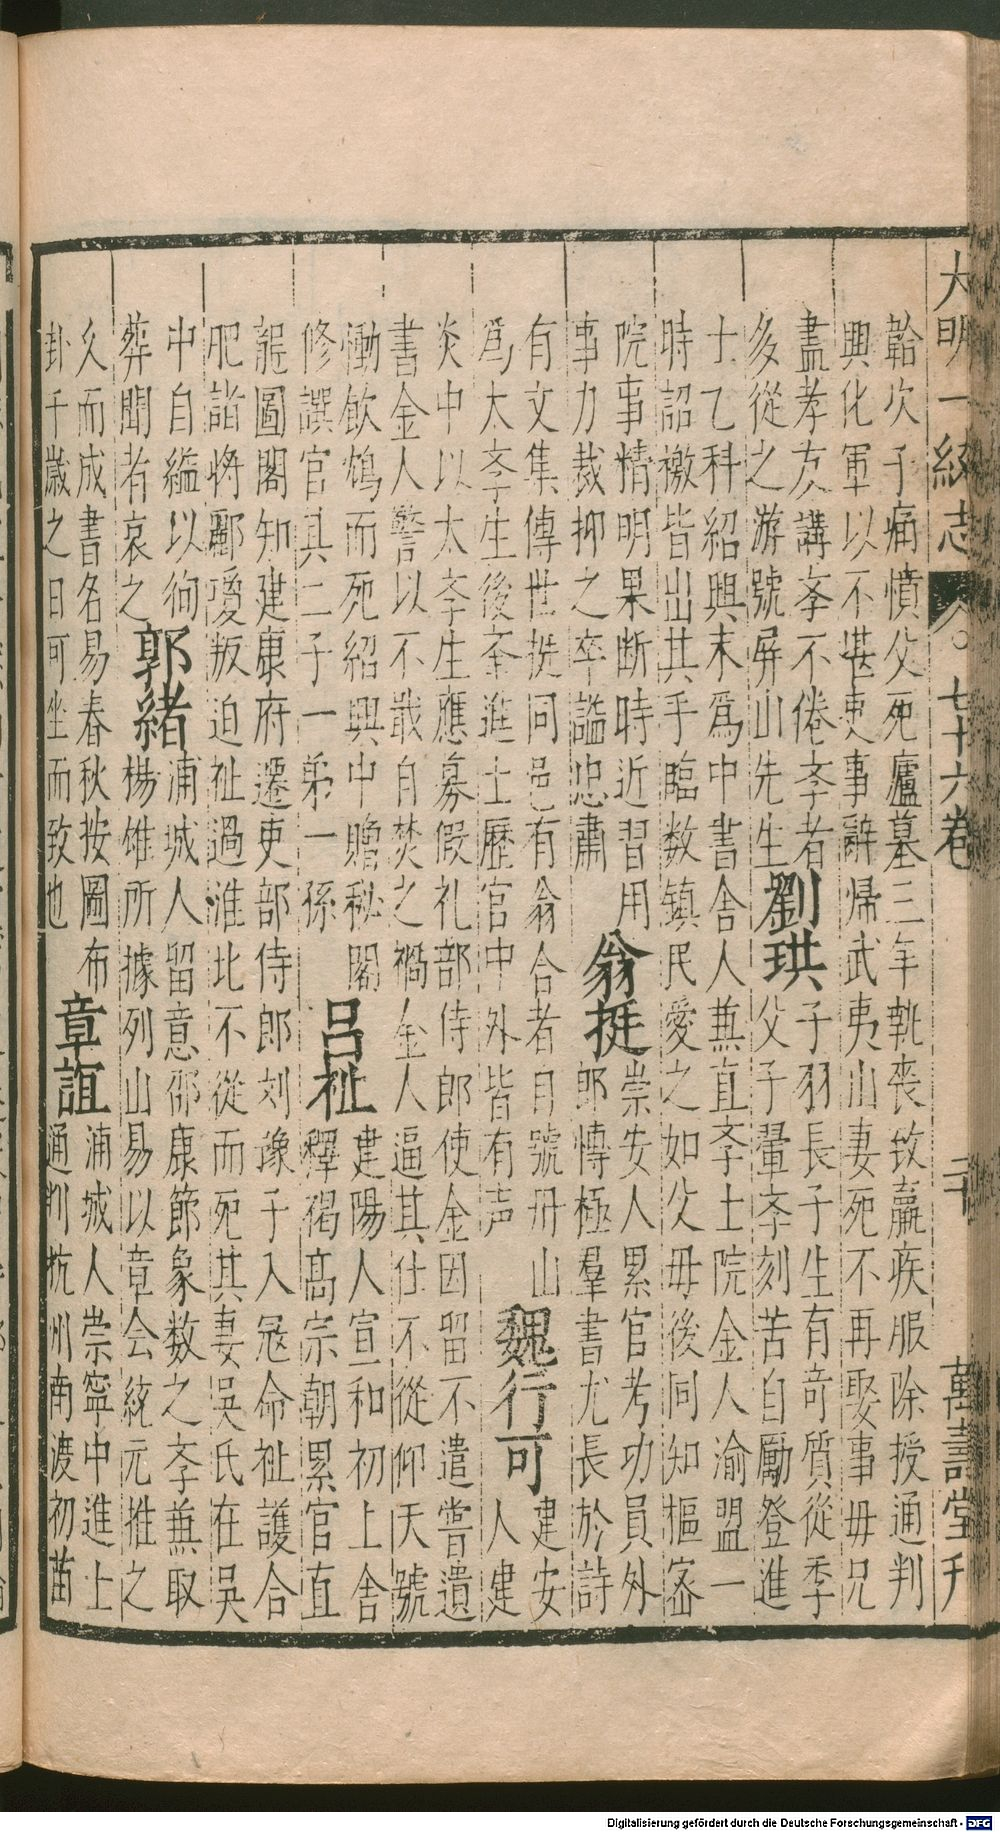 大明一統志 八〇七十六卷 二十 萬壽堂刊
韐次子痛憤父死廬墓三年執喪致羸疾服除授通判
興化軍以不堪吏事辭歸武夷山妻死不再娶事母兄
盡孝友講斈不倦斈者
多從之游號屏山先生
劉珙
子羽長子生有奇質從季
父子翬斈刻苦自勵登進
士乙科紹興末爲中書舍人兼直斈士院金人渝盟一
時詔檄皆出其手臨数鎮民愛之如父母後同知樞宻
院事精明果断時近習用
事力裁抑之卒謚忠肅
翁挺
崇安人累官考功員外
郎慱極羣書尤長於詩
有文集傳世挺同邑有翁合者自號丹山
爲太斈生後荃進士歷官中外皆有声
魏行可
建安
人建
炎中以太斈生應募假礼部侍郎使金因留不遣嘗遺
書金人警以不戢自焚之禍金人逼其仕不從仰天號
慟飲鴆而死紹興中贈秘閣
修譔官其二子一弟一孫
呂祉
建陽人宣和初上舍
釋褐高宗朝累官直
龍圖閣知建康府遷吏部侍郎刘豫子入冦命祉護合
肥諸将酈瓊叛迫祉過淮北不從而死其妻吳氏在吳
中自縊以徇
葬聞者哀之
郭緒
浦城人留意邵康節象数之斈兼取
楊雄所據列山易以章会統元推之
久而成書名易春秋按圖布
卦千歳之日可坐而致也
章誼
浦城人崇寧中進士
通判杭州南渡初苗
Digitalisierung gefördert durch die Deutsche Forschungsgemeinschaft - DFG